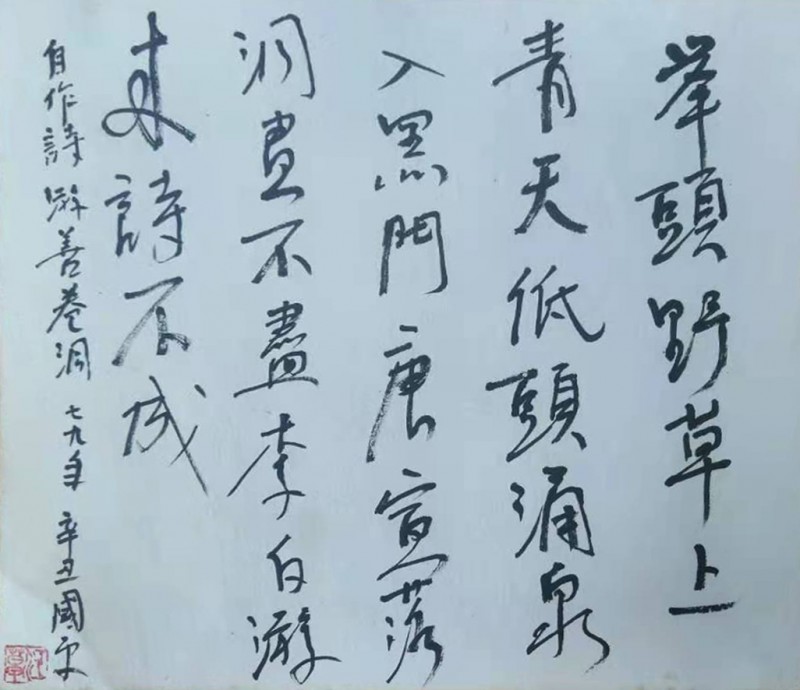 举頭野草上
青天低頭涌泉
入黑門唐寅落
洞畫不盡李白游
来詩不成
自作詩 游善卷洞 七九年 辛丑國平